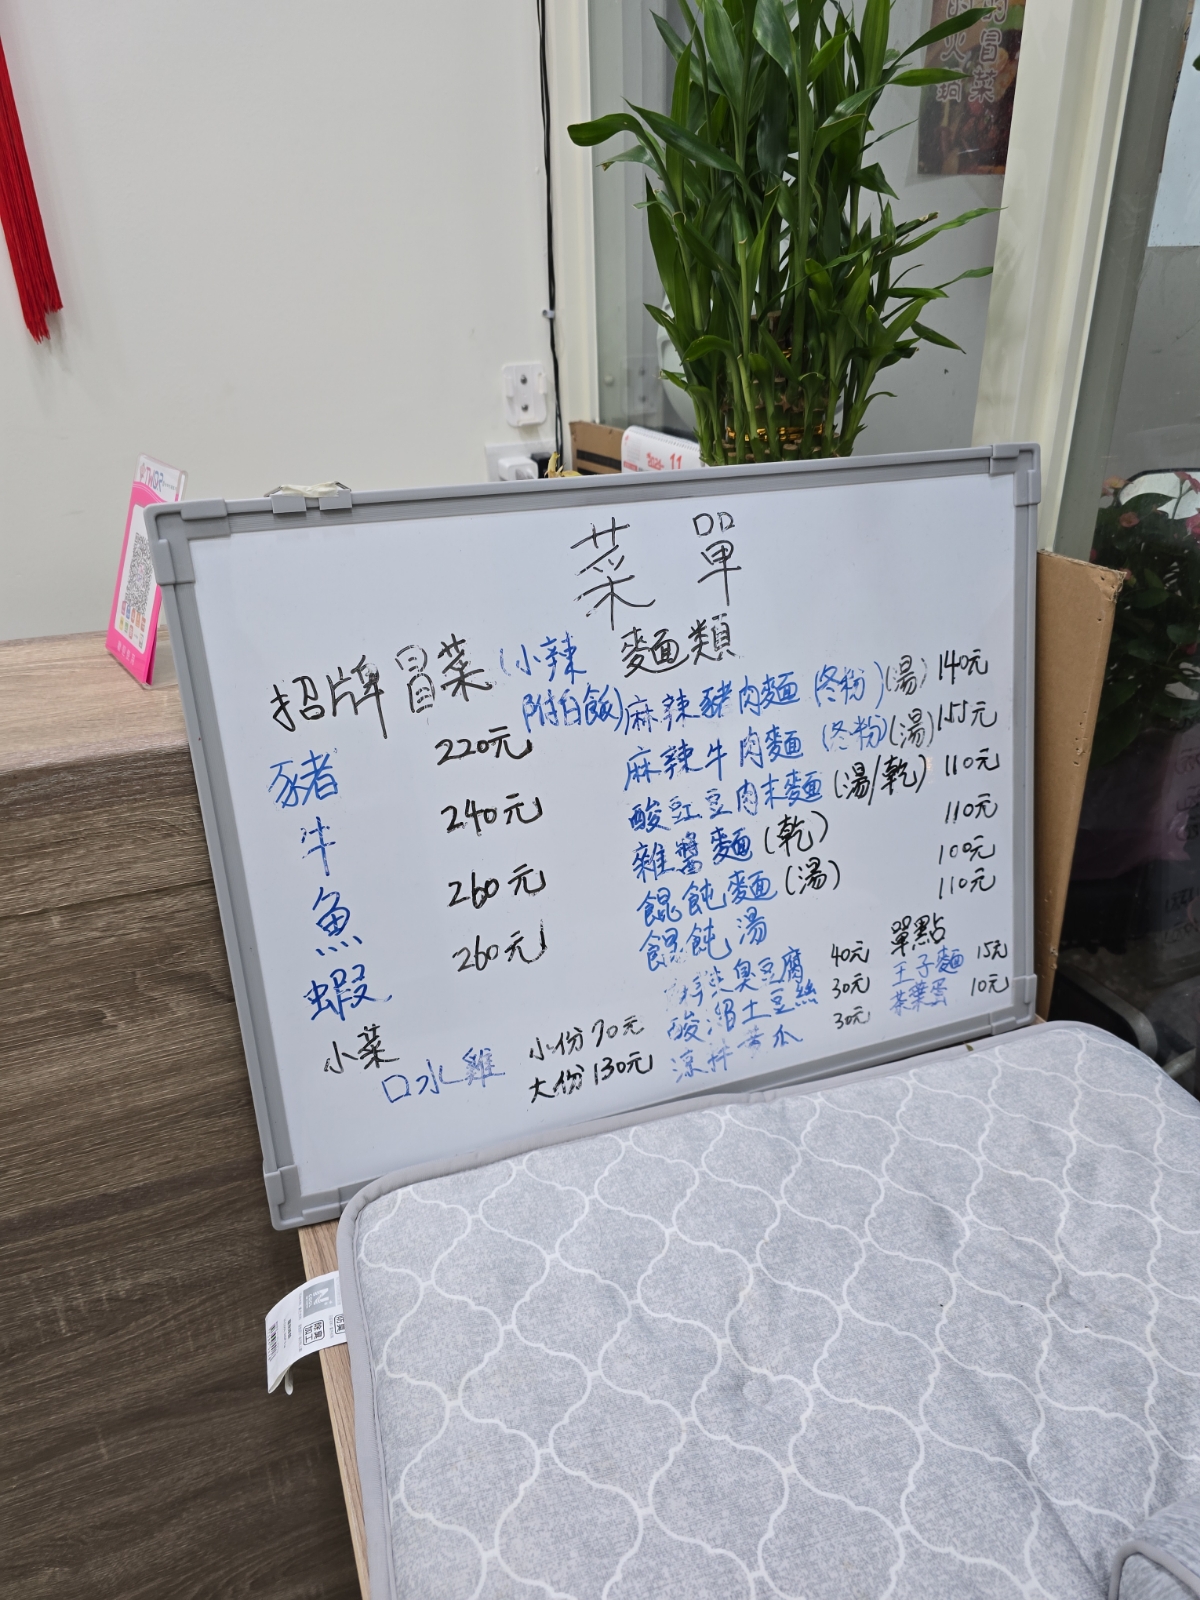 的冒菜
的火鍋
2026 11
TWQR
菜單
招牌冒菜(小辣
附白飯)
豬 220元
牛 240元
魚 260元
蝦 260元
麵類
麻辣豬肉麵(冬粉)(湯) 140元
麻辣牛肉麵(冬粉)(湯) 155元
酸豇豆肉末麵(湯/乾) 110元
雜醬麵(乾) 110元
餛飩麵(湯) 100元
餛飩湯 110元
小菜
口水雞 小份70元
大份130元
臭豆腐 40元
酸溜土豆絲 30元
涼拌黃瓜 30元
單點
王子麵 15元
茶葉蛋 10元
N